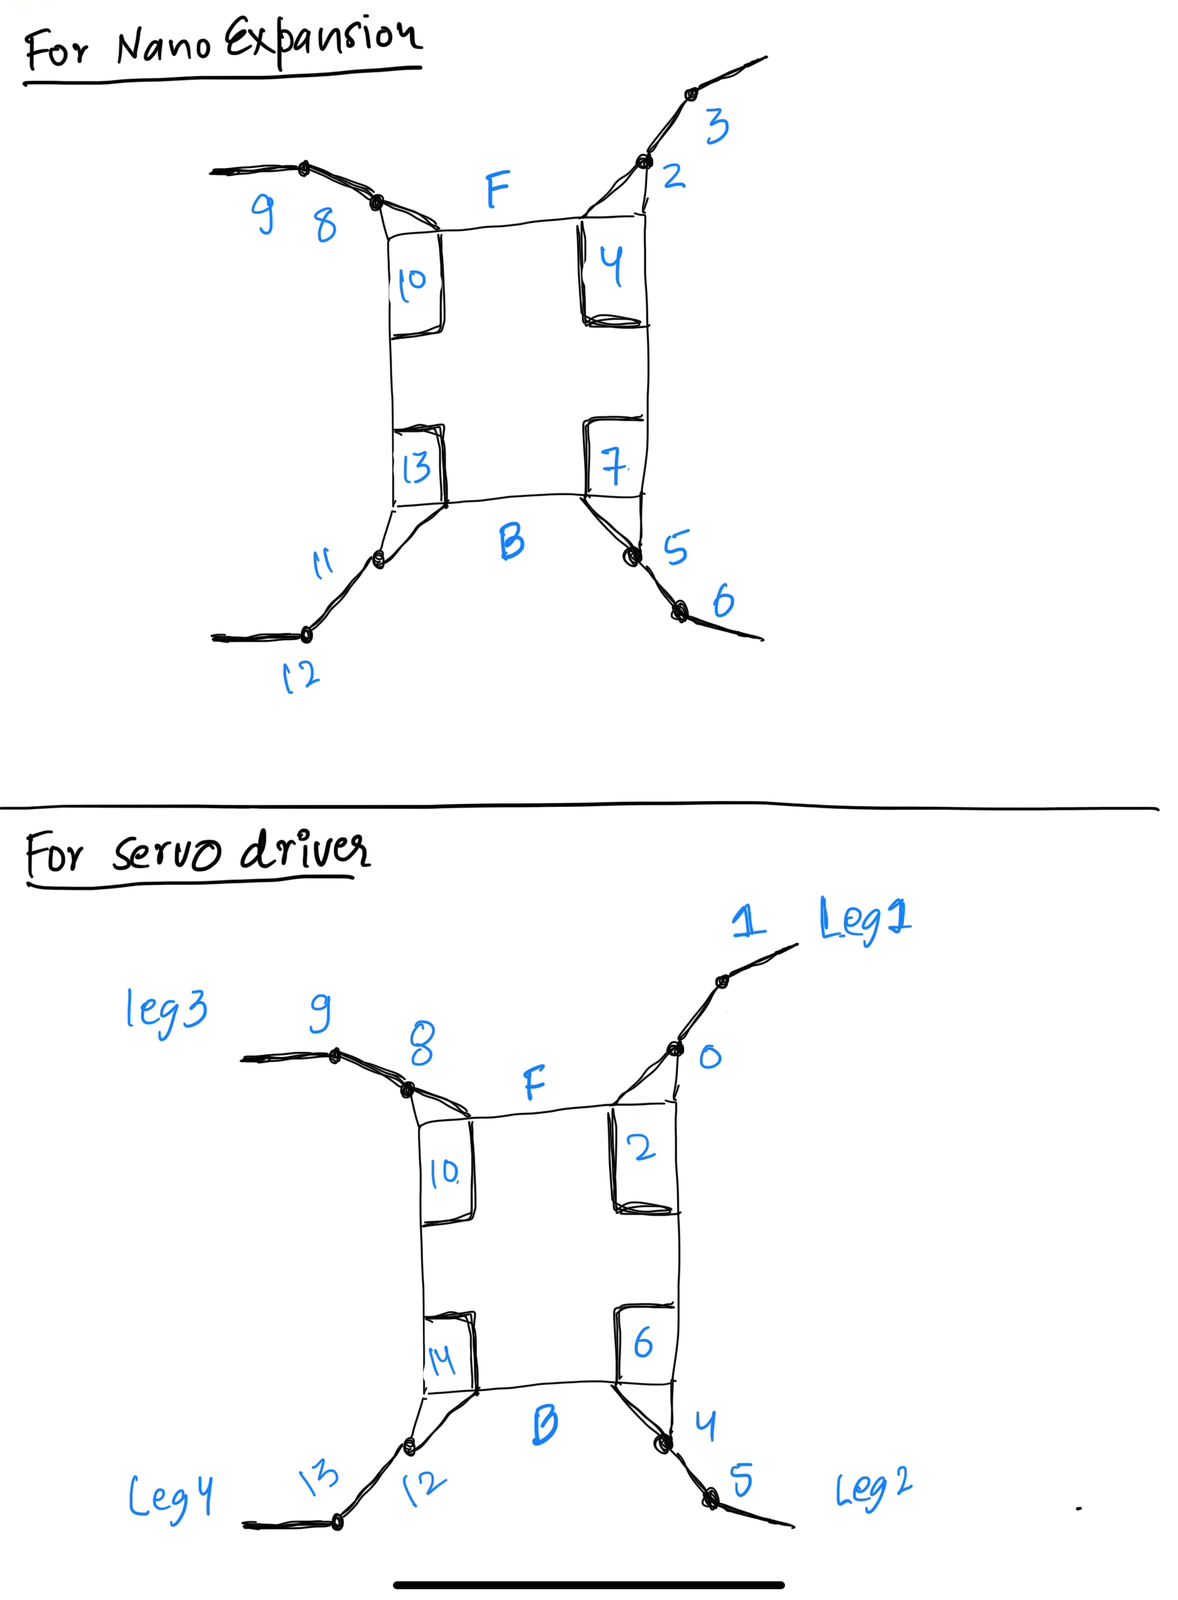 For Nano Expansion
3
2
F
9 8
10
4
13
7
11
B
5
6
12
For servo driver
1 Leg1
leg3 9
8
0
F
10
2
14
6
B
4
Leg4 13 12
5 Leg2